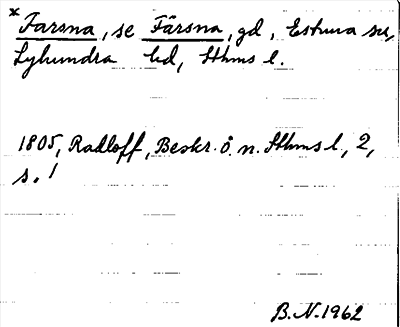 * Farsna, se Färsna, gd, Estuna sn,
Lyhundra hd, Sthms l.
1805, Radloff, Beskr. ö. n. Sthms l, 2,
s. 1
B.N. 1962